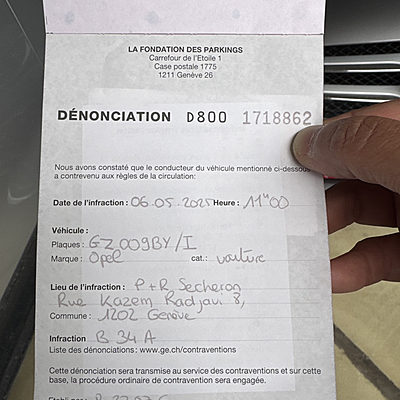 LA FONDATION DES PARKINGS
Carrefour de l'Etoile 1
Case postale 1775
1211 Genève 26
DÉNONCIATION D800 1718862
Nous avons constaté que le conducteur du véhicule mentionné ci-dessous
a contrevenu aux règles de la circulation:
Date de l'infraction : 06.05.2025 Heure : 11H00
Véhicule :
Plaques : GZ009BY/I
Marque : Opel cat.: voiture
Lieu de l'infraction : P+R Sécheron
Rue Kazem Radjavi 8,
Commune : 1202 Genève
Infraction B 34 A
Liste des dénonciations : www.ge.ch/contraventions
Cette dénonciation sera transmise au service des contraventions et sur cette
base, la procédure ordinaire de contravention sera engagée.
Etabli par :